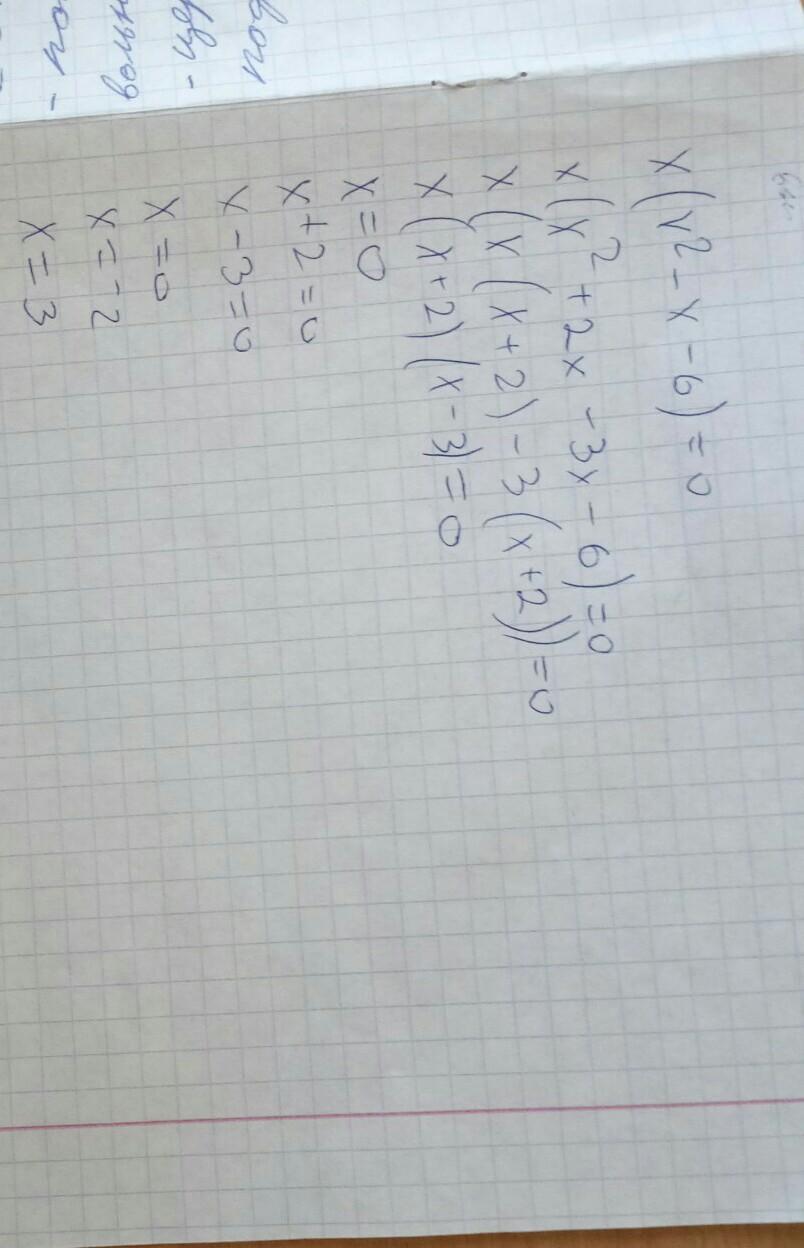 x(x²-x-6)=0
x(x²+2x-3x-6)=0
x(x(x+2)-3(x+2))=0
x(x+2)(x-3)=0
x=0
x+2=0
x-3=0
x=0
x=-2
x=3